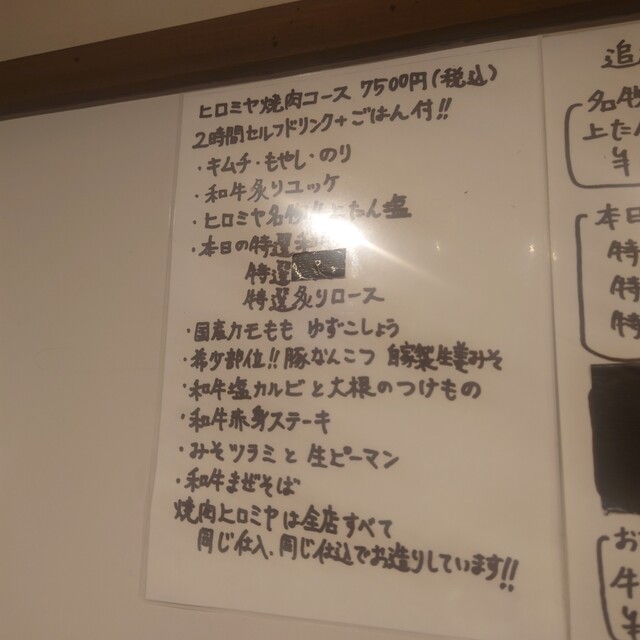 ヒロミヤ焼肉コース 7500円(税込)
2時間セルフドリンク+ごはん付!!
・キムチ・もやし・のり
・和牛炙りユッケ
・ヒロミヤ名物 上たん塩
・本日の特選
特選
特選炙りロース
・国産カモもも ゆずこしょう
・希少部位!! 豚なんこつ 自家製生姜みそ
・和牛塩カルビと大根のつけもの
・和牛赤身ステーキ
・みそツラミと生ピーマン
・和牛まぜそば
焼肉ヒロミヤは全店すべて
同じ仕入、同じ仕込でお造りしています!!
追
名物
上たん
本日
特
特
特
お
牛